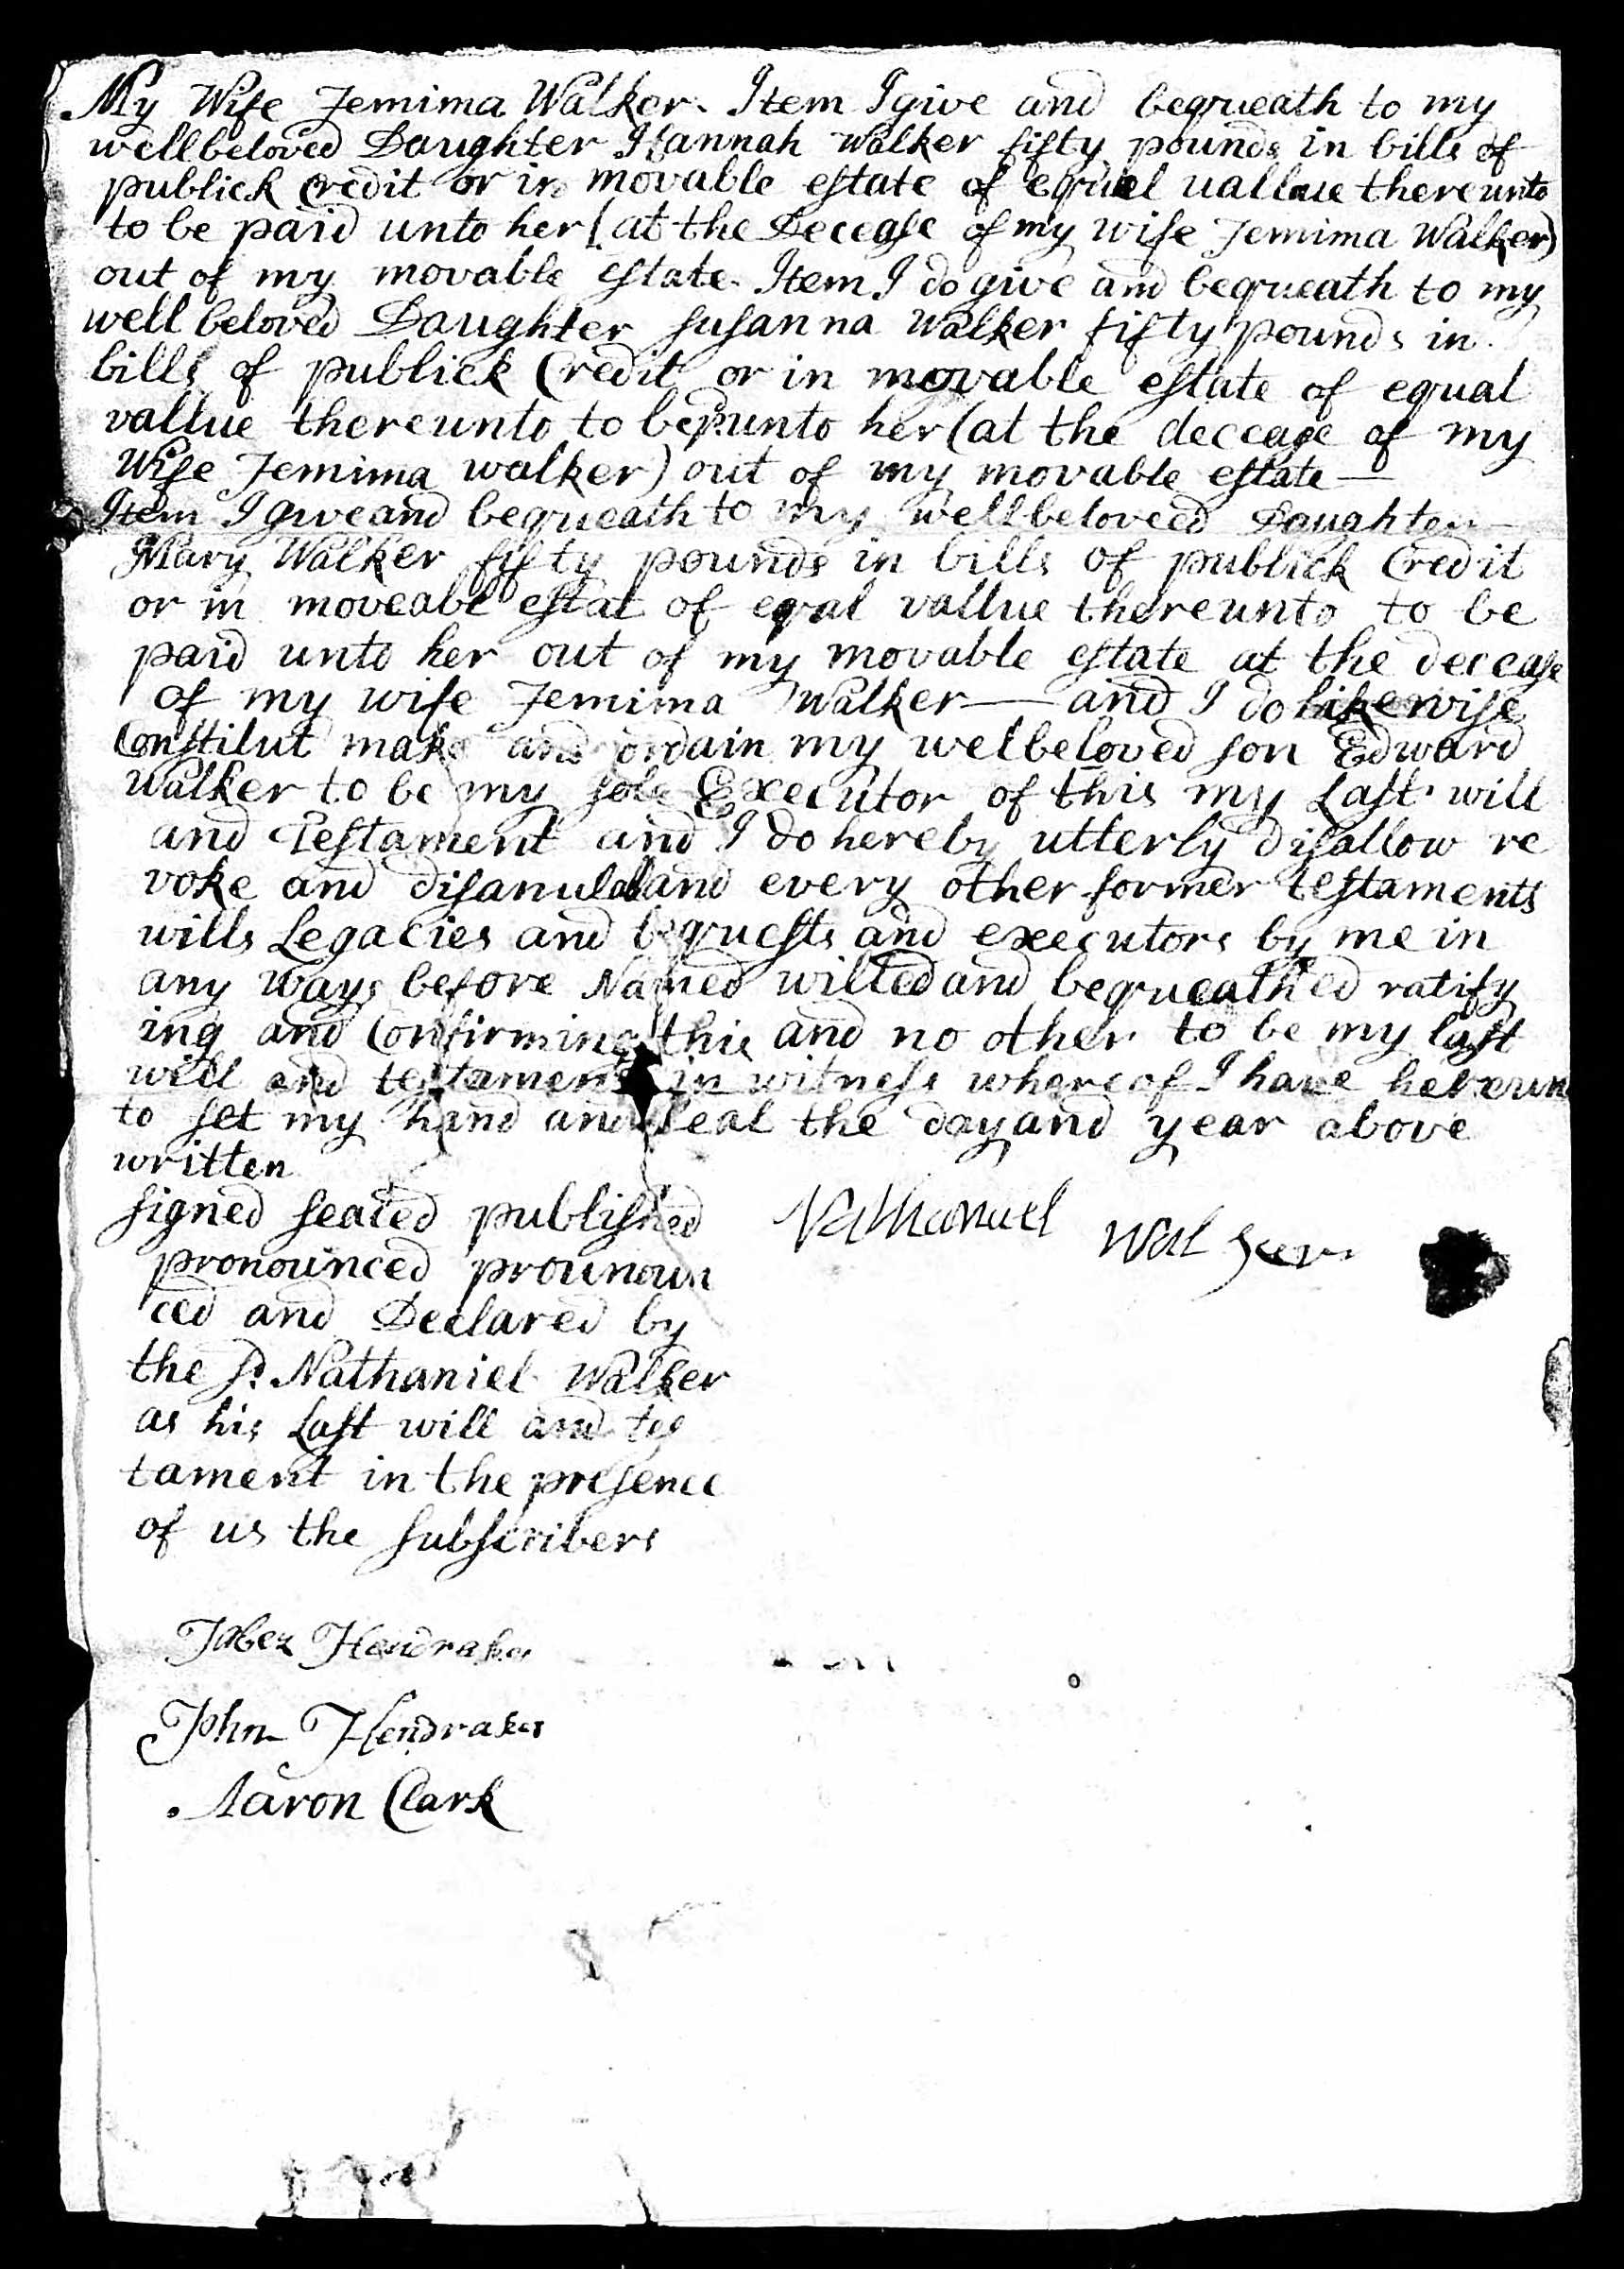 My Wife Jemima Walker. Item I give and bequeath to my
wellbeloved Daughter Hannah Walker fifty pounds in bills of
publick Credit or in movable estate of equal uallue thereunto
to be paid unto her (at the Decease of my wife Jemima Walker)
out of my movable estate. Item I do give and bequeath to my
well beloved Daughter susanna Walker fifty pounds in
bills of publick Credit or in movable estate of equal
vallue thereunto to be pd. unto her (at the decease of my
Wife Jemima walker) out of my movable estate —
Item I give and bequeath to my wellbeloveed Daughter
Mary Walker fifty pounds in bills of publick Credit
or in moveabl estat of eqal vallue thereunto to be
paid unto her out of my movable estate at the decease
of my wife Jemima Walker — and I do likewise
Constitut make and ordain my welbeloved son Edward
Walker to be my sole Executor of this my Last will
and Testament and I do hereby utterly disallow re
voke and disanul all and every other former testaments
wills Legacies and bequests and executors by me in
any ways before Named willed and bequeathed ratify
ing and Confirming this and no other to be my last
will and testament in witness whereof I have hereun
to set my hand and seal the day and year above
written
signed sealed published
pronounced prounoun
ced and Declared by
the sd. Nathaniel Walker
as his Last will and tes
tament in the presence
of us the subscribers
Nathanael Walker
Jabez Hendrake
John Hendrakes
Aaron Clark